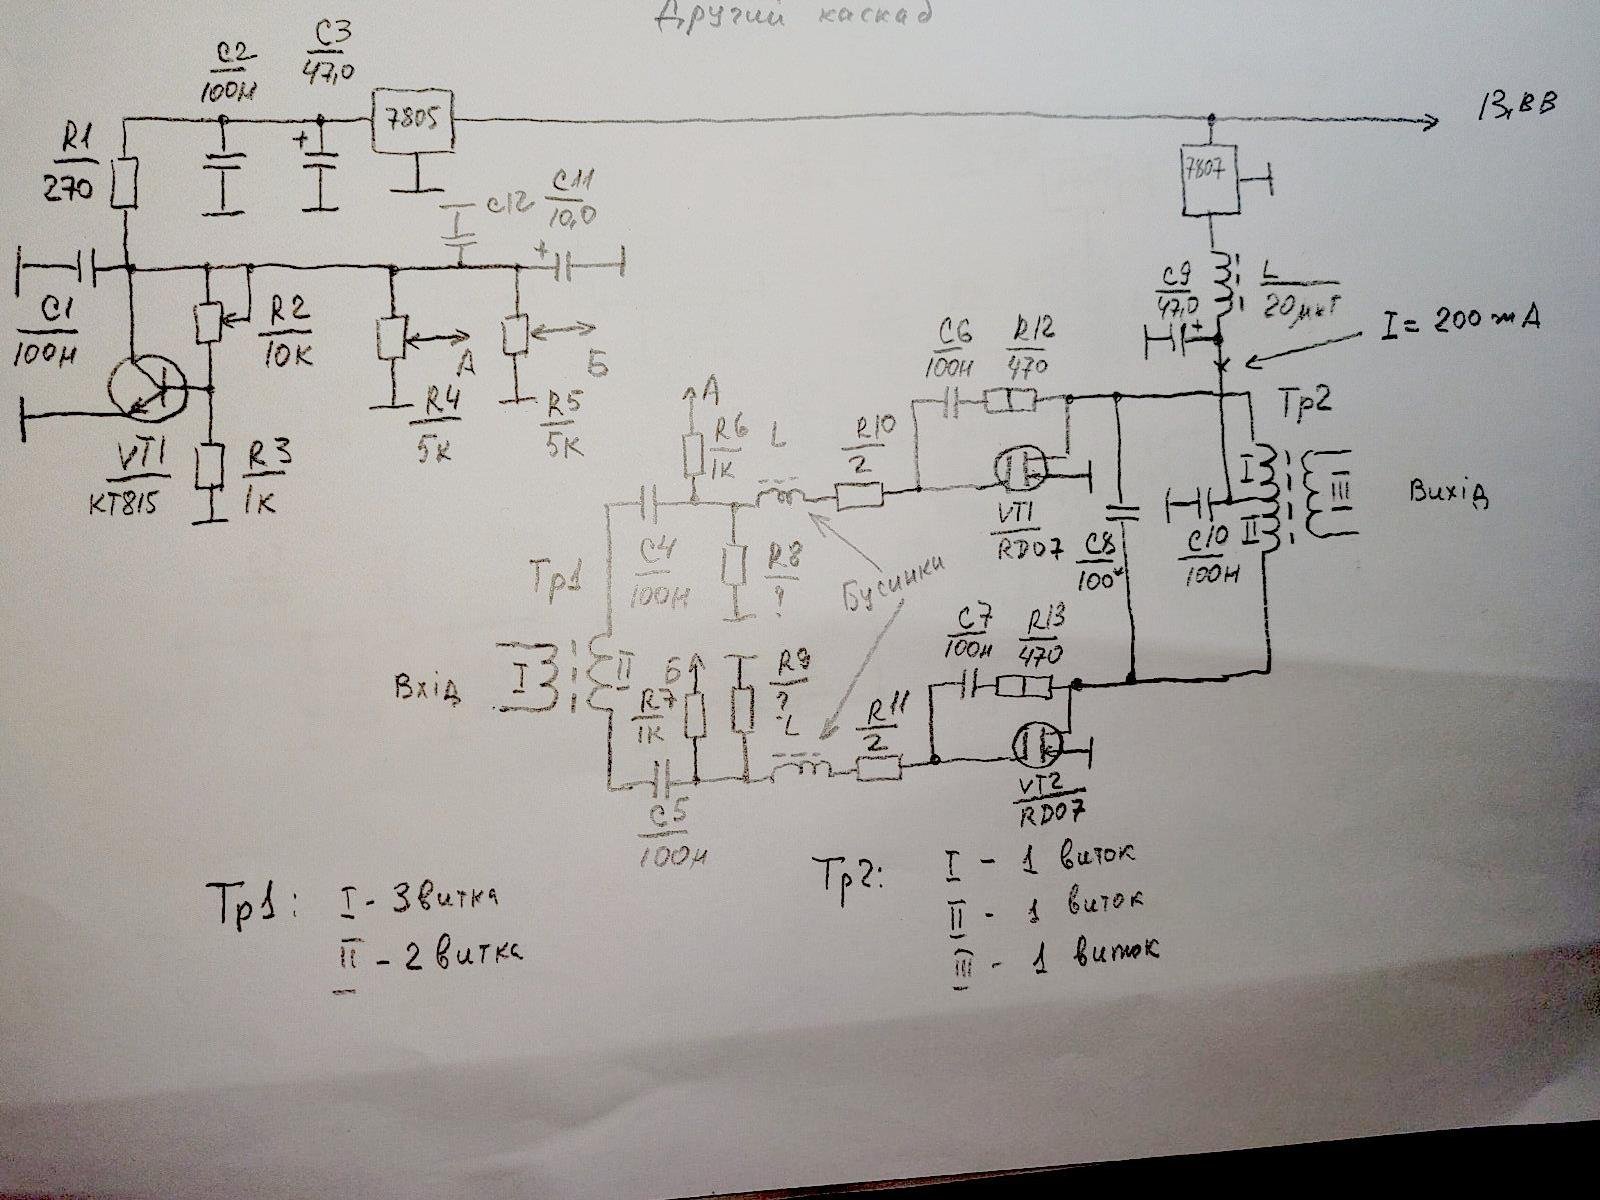 Другий каскад
C2
100н
C3
47,0
7805
13,8В
R1
270
7807
C12
C11
10,0
+
+
C1
100н
R2
10К
А
Б
R4
5К
R5
5К
VT1
КТ815
R3
1К
C9
47,0
+
L
20мкГ
I = 200 mA
C6
100н
R12
470
Тр2
А
R6
1К
L
R10
2
I
II
III
Вихід
VT1
RD07
C8
100
C10
100н
C4
100н
R8
?
Тр1
Бусинки
C7
100н
R13
470
Вхід
I
II
Б
R7
1К
R9
?
L
R11
2
VT2
RD07
C5
100н
Тр1: I - 3 витка
II - 2 витка
Тр2: I - 1 виток
II - 1 виток
III - 1 виток